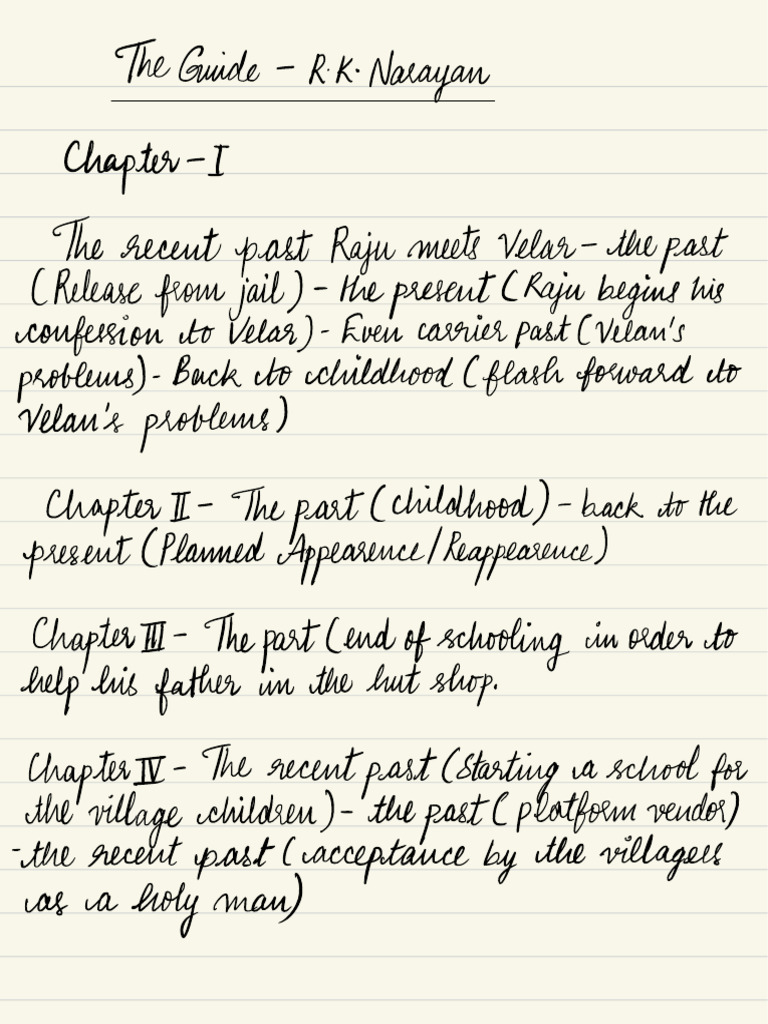 The Guide - R.K. Narayan
Chapter - I
The recent past Raju meets Velar - the past
(Release from jail) - the present (Raju begins his
confession to Velar) - Even carrier past (Velan's
problems) - Back to childhood (flash forward to
Velan's problems)
Chapter II - The part (childhood) - back to the
present (Planned Appearence/Reappearence)
Chapter III - The part (end of schooling in order to
help his father in the hut shop.
Chapter IV - The recent past (Starting a school for
the village children) - the past (platform vendor)
- the recent past (acceptance by the villagers
as a holy man)